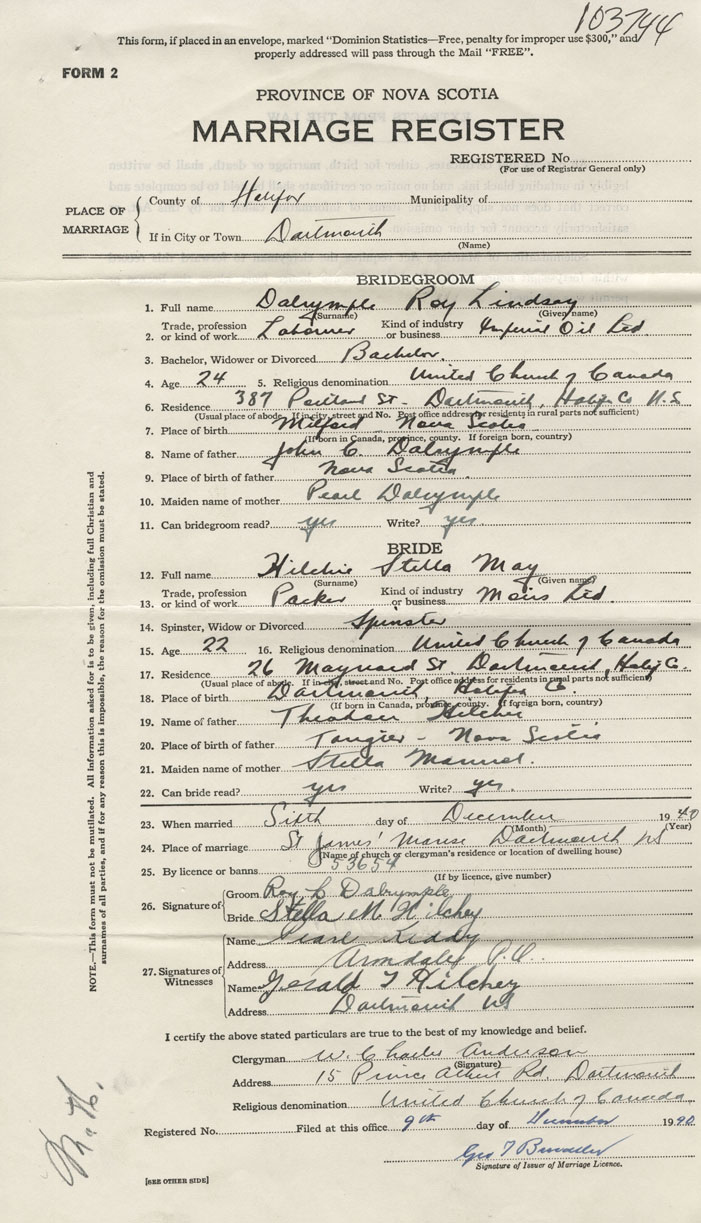 103744
This form, if placed in an envelope, marked "Dominion Statistics—Free, penalty for improper use $300," and
properly addressed will pass through the Mail "FREE".
FORM 2
PROVINCE OF NOVA SCOTIA
MARRIAGE REGISTER
REGISTERED No.
(For use of Registrar General only)
PLACE OF MARRIAGE
County of Halifax Municipality of
If in City or Town Dartmouth
(Name)
BRIDEGROOM
1. Full name Dalrymple Roy Lindsay
(Surname) (Given name)
2. Trade, profession or kind of work Labourer Kind of industry or business Imperial Oil Ltd.
3. Bachelor, Widower or Divorced Bachelor.
4. Age 24 5. Religious denomination United Church of Canada
6. Residence 387 Portland St - Dartmouth, Halifx Co N.S
(Usual place of abode. If in city, street and No. Post office address for residents in rural parts not sufficient)
7. Place of birth Milford Nova Scotia
(If born in Canada, province, county. If foreign born, country)
8. Name of father John C. Dalrymple
9. Place of birth of father Nova Scotia
10. Maiden name of mother Pearl Dalrymple
11. Can bridegroom read? yes Write? yes
BRIDE
12. Full name Hilchie Stella May
(Surname) (Given name)
13. Trade, profession or kind of work Packer Kind of industry or business Moirs Ltd.
14. Spinster, Widow or Divorced Spinster
15. Age 22 16. Religious denomination United Church of Canada
17. Residence 26 Maynard St. Dartmouth, Halifx C.
(Usual place of abode. If in city, street and No. Post office address for residents in rural parts not sufficient)
18. Place of birth Dartmouth, Halifax C.
(If born in Canada, province, county. If foreign born, country)
19. Name of father Hilchie
20. Place of birth of father Tangier - Nova Scotia
21. Maiden name of mother Stella
22. Can bride read? yes Write? yes.
23. When married Sixth day of December 1940
(Month) (Year)
24. Place of marriage St James' Manse Dartmouth NS
(Name of church or clergyman's residence or location of dwelling house)
25. By licence or banns 53654
(If by licence, give number)
26. Signature of
Groom Roy L Dalrymple
Bride Stella M Hilchey
27. Signatures of Witnesses
Name Pearl Kiddy
Address Armdale P.O.
Name Gerald T Hilchey
Address Dartmouth NS
I certify the above stated particulars are true to the best of my knowledge and belief.
Clergyman W. Charles Anderson
(Signature)
Address 15 Prince Albert Rd. Dartmouth
Religious denomination United Church of Canada
Registered No. Filed at this office 9th day of December 1940
Geo T
Signature of Issuer of Marriage Licence.
[SEE OTHER SIDE]
NOTE.—This form must not be mutilated. All information asked for is to be given, including full Christian and
surnames of all parties, and if for any reason this is impossible, the reason for the omission must be stated.